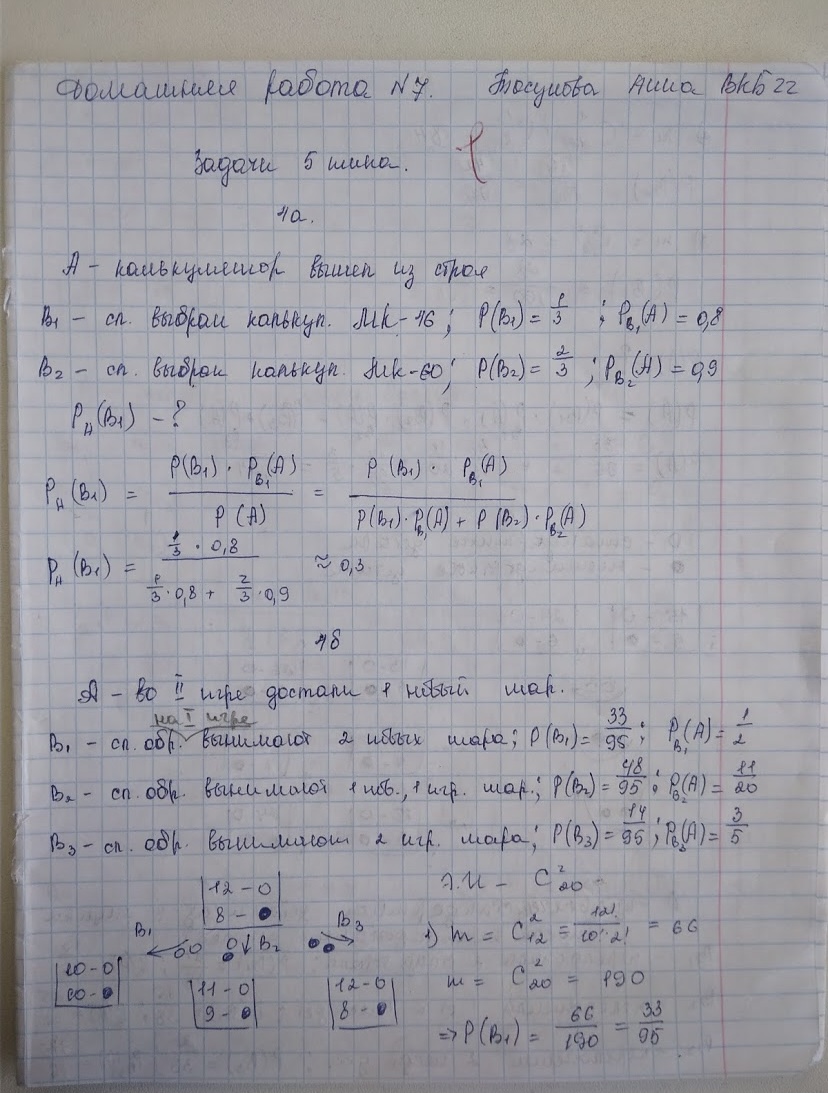 Домашняя работа №7. Тосунова Анна ВКБ22
Задачи 5 типа.
1а.
А - калькулятор вышел из строя
B₁ - сл. выбран калькул. МК-46; P(B₁) = 1/3 ; P_B₁(A) = 0,8
B₂ - сл. выбран калькул. МК-60; P(B₂) = 2/3 ; P_B₂(A) = 0,9
P_A(B₁) - ?
P_A(B₁) = P(B₁) · P_B₁(A) / P(A) = P(B₁) · P_B₁(A) / P(B₁)·P_B₁(A) + P(B₂)·P_B₂(A)
P_A(B₁) = 1/3 · 0,8 / 1/3 · 0,8 + 2/3 · 0,9 ≈ 0,3
1б
А - во II игре достали 1 новый шар.
на I игре
B₁ - сл. обр. вынимают 2 новых шара; P(B₁) = 33/95 ; P_B₁(A) = 1/2
B₂ - сл. обр. вынимают 1 нов., 1 игр. шар.; P(B₂) = 48/95 ; P_B₂(A) = 11/20
B₃ - сл. обр. вынимают 2 игр. шара; P(B₃) = 14/95 ; P_B₃(A) = 3/5
12 - О
8 - ●
B₁ B₂ B₃
10 - О
10 - ●
11 - О
9 - ●
12 - О
8 - ●
Э.И - C²₂₀ -
1) m = C²₁₂ = 12! / 10! · 2! = 66
n = C²₂₀ = 190
⇒ P(B₁) = 66/190 = 33/95